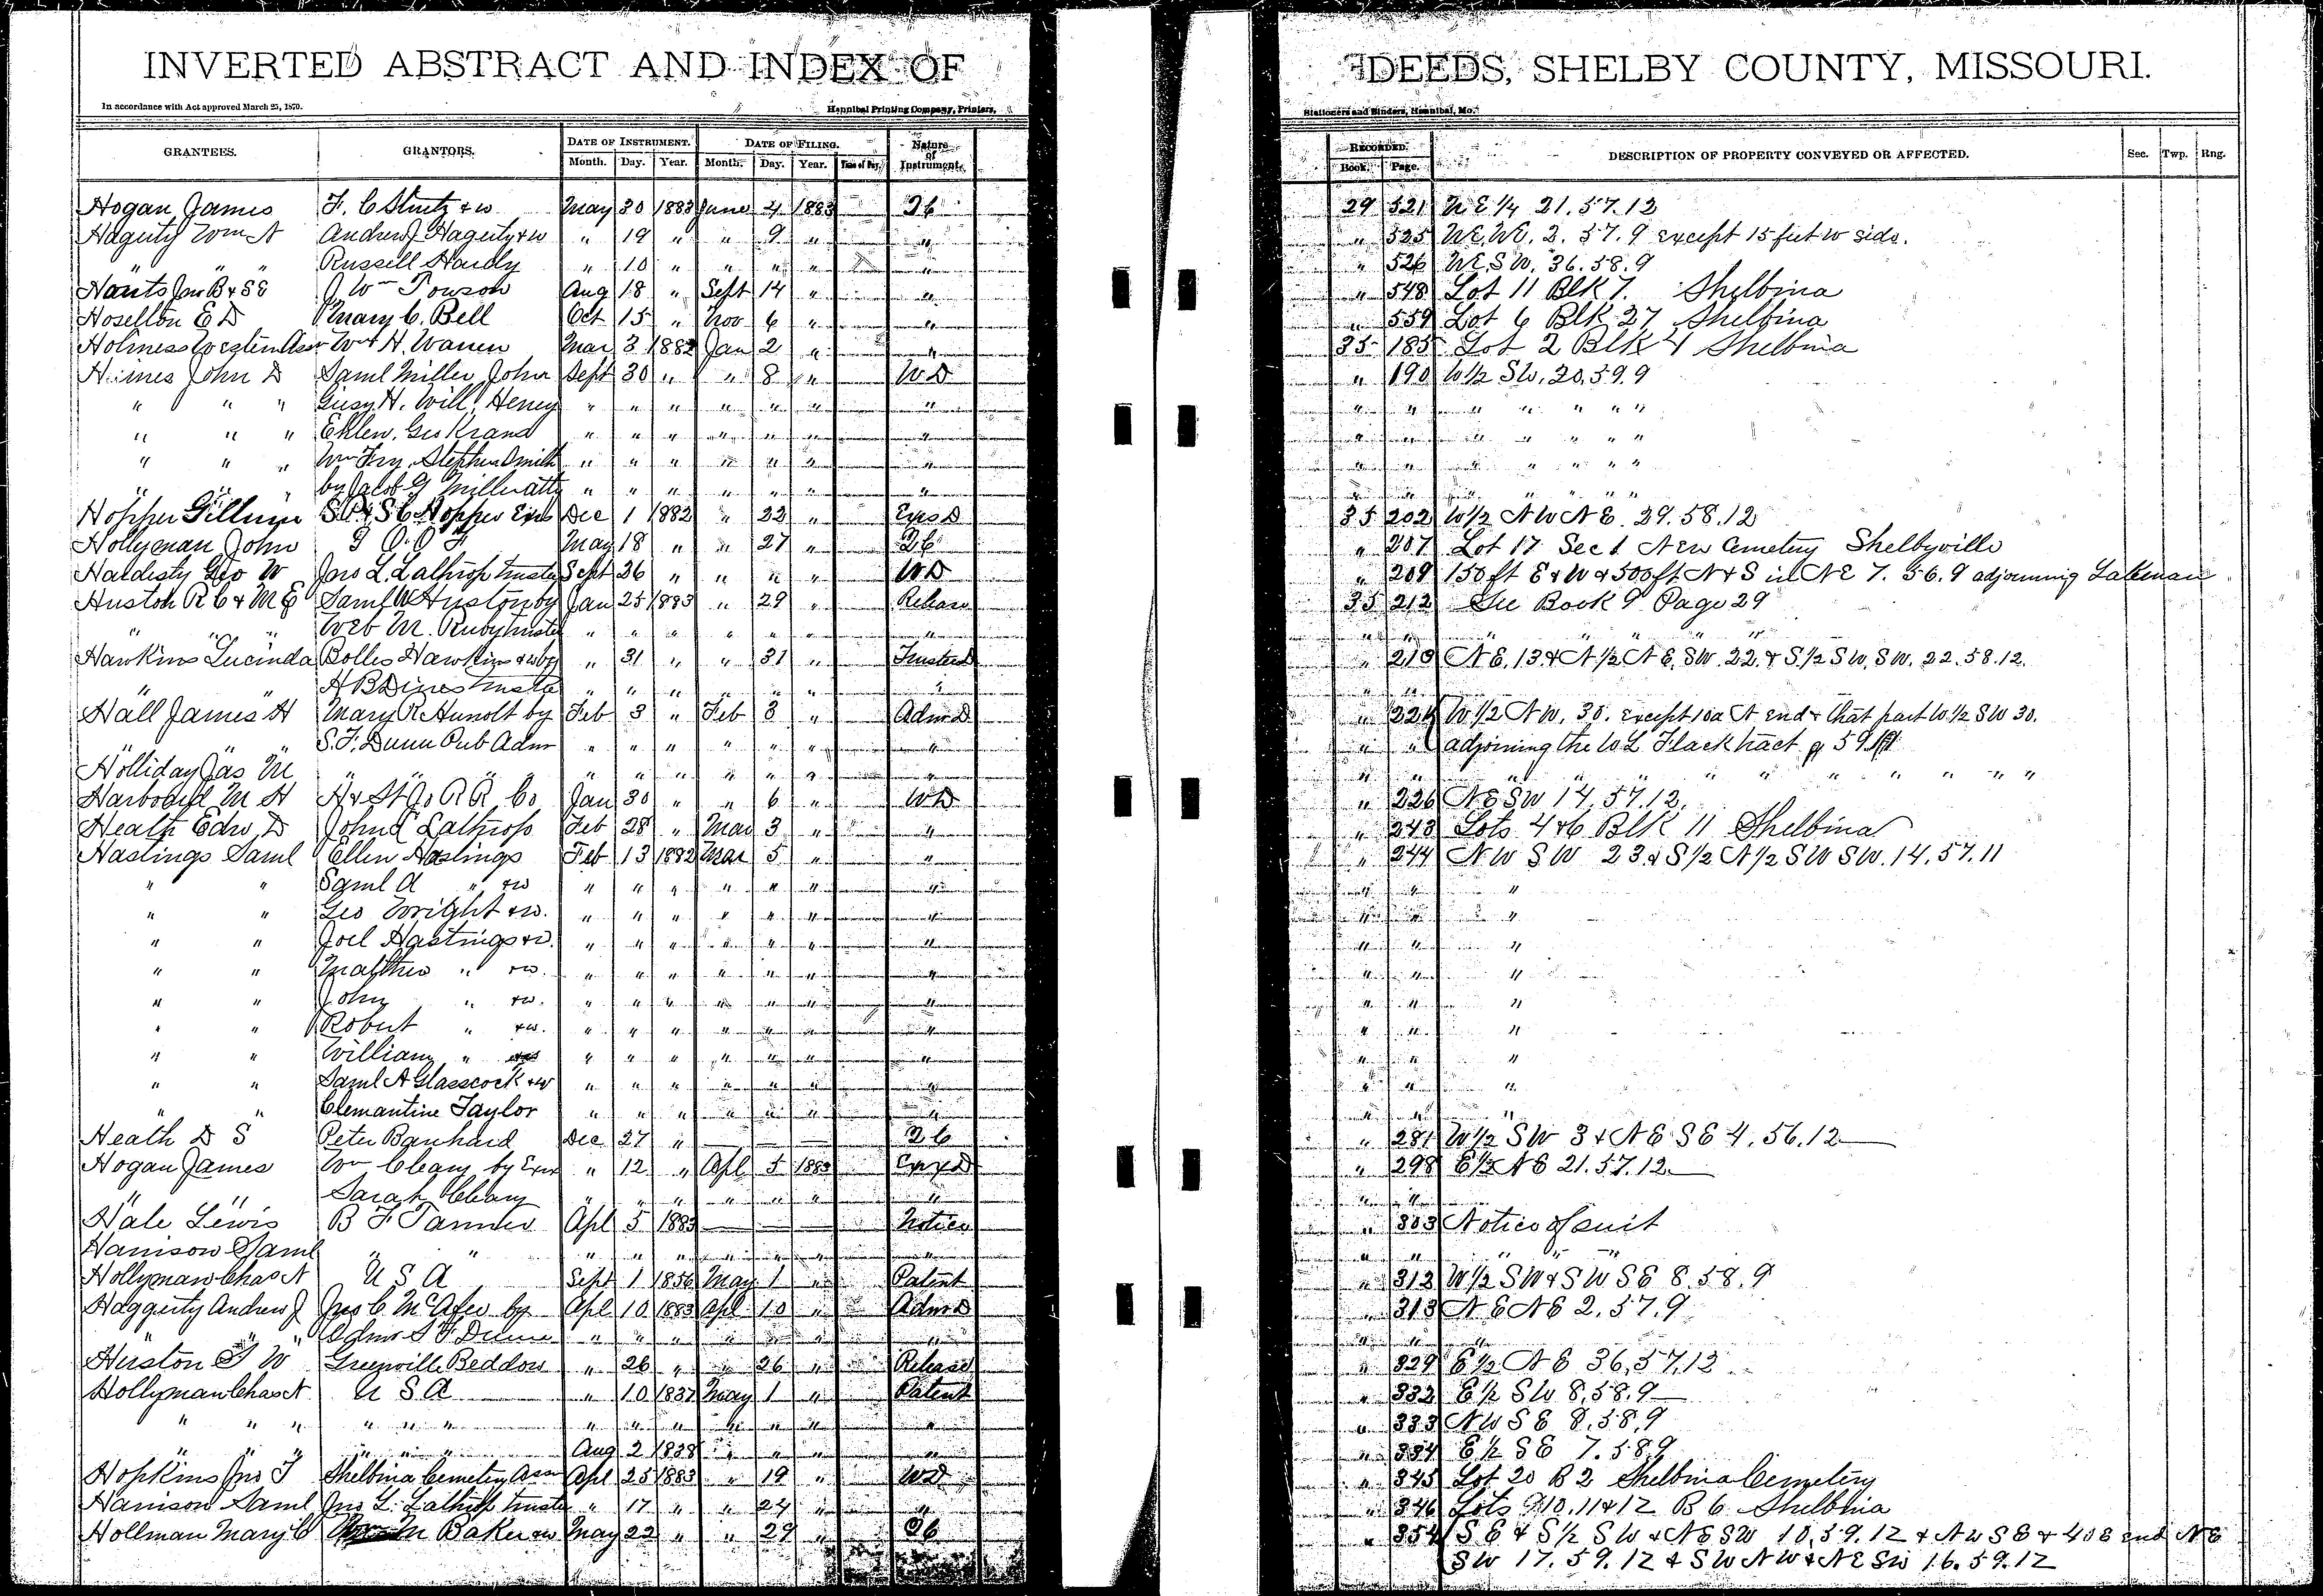 INVERTED ABSTRACT AND INDEX OF DEEDS, SHELBY COUNTY, MISSOURI.
In accordance with Act approved March 25, 1870. Hannibal Printing Company, Printers, Stationers and Binders, Hannibal, Mo.
GRANTEES. GRANTORS. DATE OF INSTRUMENT. DATE OF FILING. Nature of Instrument. RECORDED. DESCRIPTION OF PROPERTY CONVEYED OR AFFECTED. Sec. Twp. Rng.
Month. Day. Year. Month. Day. Year. Time of Day. Book. Page.
Hogan James F. C Sturtz + w May 30 1883 June 4 1883 29 521 N E 1/4 21. 57. 12
Hagerty Wm A Andrew J Hagerty + w " 19 " " 9 " " " 525 2. 57. 9 except 15 feet W side.
" " " Russell Hardy " 10 " " " " " " 526 36. 58. 9
J Wm Towson Aug 18 " Sept 14 " " " 548 Lot 11 Blk 7. Shelbina
Hosellon E D Mary C. Bell Oct 15 " Nov 6 " " " 559 Lot 6 Blk 27 Shelbina
Holiness Western Assn Wm H. Warren Mar 3 1882 Jan 2 " " 35 185 Lot 2 Blk 4 Shelbina
John D Saml Miller, John Sept 30 " " 8 " W D " 190 W 1/2 SW. 20. 59. 9
" " " H. Will, Henry " " " " " " " " " " " " " "
" " " " " " " " " " " " " " " " "
" " " Wm Fry, Stephen Smith " " " " " " " " " " " " " "
" " " by Jacob G Miller atty " " " " " " " " " " " " " "
Hopper Gillum S P & S C Hopper Exrs Dec 1 1882 " 22 " Exrs D 35 202 W 1/2 N W N E. 29. 58. 12
Hollyman John I O O F May 18 " " 27 " " 207 Lot 17 Sec 1 New Cemetery Shelbyville
Hardisty Geo W Jno L. Lathrop trustee Sept 26 " " " " W D " 209 150 ft E & W & 500 ft N & S in N E 7. 56. 9 adjoining Lakenan
Huston R C & M E Saml W Huston by Jan 25 1883 " 29 " Release 35 212 See Book 9 Page 29
" " " Web M. Ruby trustee " " " " " " " " " " " " " "
Hawkins Lucinda Bolles Hawkins & w by " 31 " " 31 " Trustee D " 213 N E. 13. & N 1/2 N E, SW. 22. & S. 1/2 SW, SW. 22. 58. 12.
" " A B Dines trustee " " " " " " " " "
Hall James H Mary R Hunolt by Feb 3 " Feb 3 " Adm D " 224 W. 1/2 N W. 30. except 10a N end & that part W. 1/2 SW 30.
" " " S. F. Dunn Pub Admr " " " " " " " " " adjoining the W L Flack tract
Holliday Jas M " " " " " " " " " " " " " " " " " " " "
H & St Jo R R Co Jan 30 " " 6 " W D " 226 N E SW 14. 57. 12.
Heath Edw D Lathrop Feb 28 " Mar 3 " " " 243 Lots 4 & 6 Blk 11 Shelbina
Hastings Saml Ellen Hastings Feb 13 1882 Mar 5 " " " 244 N W S W 23. & S 1/2 N 1/2 SW SW. 14. 57. 11
" " Saml A " & w " " " " " " " " " "
" " Geo Wright & w. " " " " " " " " " "
" " Joel Hastings & w. " " " " " " " " " "
" " Matthew " & w. " " " " " " " " " "
" " John " & w. " " " " " " " " " "
" " Robert " & w. " " " " " " " " " "
" " William " " " " " " " " " " "
" " Saml A Glasscock & w " " " " " " " " " "
" " Clemantine Taylor " " " " " " " " " "
Heath D S Peter Barnhard Dec 27 " " 281 W 1/2 SW 3 & N E S E 4. 56. 12
Hogan James Wm Cleary by Exrx " 12 " Apl 5 1883 Exrx D " 298 E 1/2 N E 21. 57. 12
" " Sarah Cleary " " " " " " " " "
Hale Lewis B F Tanner Apl 5 1883 Notice " 303 Notice of suit
Harrison Saml " " " " " " " " " " " "
Hollyman Chas N U S A Sept 1 1856 May 1 " Patent " 312 W 1/2 SW & SW S E 8. 58. 9
Haggerty Andrew J Jno C McAfee by Apl 10 1883 Apl 10 " Adm D " 313 N E N E 2. 57. 9
" " " Admr S F Dunn " " " " " " " " " "
Huston T W Greenville Beddow " 26 " " 26 " Release " 329 E 1/2 N E 36. 57. 12
Hollyman Chas N U S A " 10 1837 May 1 " Patent " 332 E 1/2 S W 8. 58. 9
" " " " " " " " " " " " " " 333 N W S E 8. 58. 9
" " " " " " Aug 2 1838 " " " " " 334 E 1/2 S E 7. 58. 9
Hopkins Jno T Shelbina Cemetery Assn Apl 25 1883 " 19 " W D " 345 Lot 20 B 2 Shelbina Cemetery
Harrison Saml Jno L. Lathrop trustee " 17 " " 24 " " " 346 Lots 9, 10, 11 & 12 B 6 Shelbina
Hollman Mary C M Baker & w May 22 " " 29 " " 354 S E & S 1/2 S W & N E SW 10. 59. 12 & N W S E & 40 E end N E
SW 17. 59. 12 & SW N W & N E SW 16. 59. 12